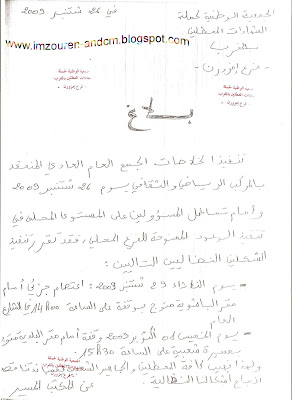 الجمعية الوطنية لحملة
الشهادات المعطلين
بالمغرب
- فرع إمزورن -
في 26 شتنبر 2009
www.imzouren-andam.blogspot.com
بلاغ
تنفيذا لخلاصات الجمع العام العادي المنعقد
بالمركب الرياضي والثقافي يوم 26 شتنبر 2009
وأمام تماطل المسؤولين على المستوى المحلي في
تنفيذ الوعود الممنوحة للفرع المحلي، فقد تقرر تنفيذ
الشكلين النضاليين التاليين:
- يوم الثلاثاء 29 شتنبر 2009: اعتصام جزئي أمام
مقر الباشوية متوج بوقفة على الساعة 14h00
العام
- يوم الخميس 01 أكتوبر 2009 وقفة أمام مقر البلدية متوجة
بمسيرة شعبية على الساعة 15h30
ولهذا نهيب كافة المعطلين والجماهير الشعبية
لإنجاح أشكالنا النضالية.
عن المكتب المسير